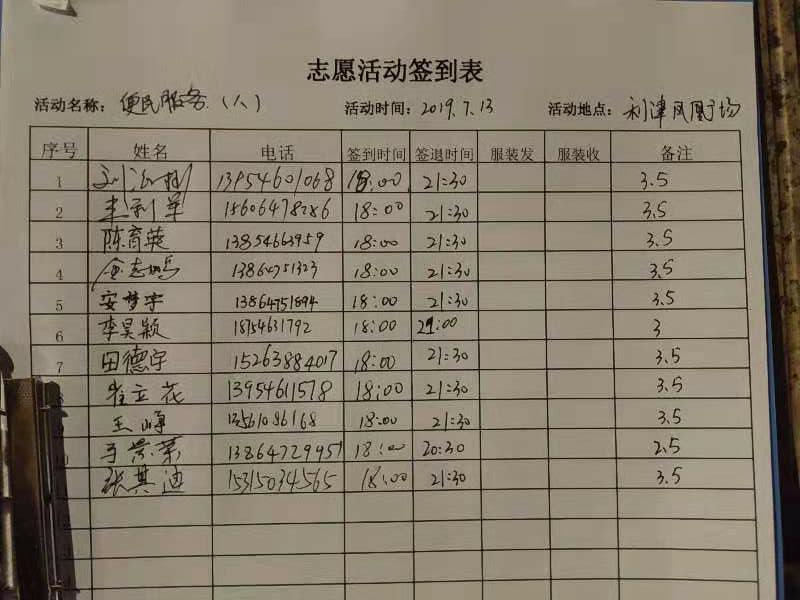 志愿活动签到表
活动名称: 便民服务(八) 活动时间: 2019.7.13 活动地点: 利津凤凰广场
序号 姓名 电话 签到时间 签退时间 服装发 服装收 备注
1 13954601068 18:00 21:30 3.5
2 15606478286 18:00 21:30 3.5
3 陈育英 13854663959 18:00 21:30 3.5
4 13864751323 18:00 21:30 3.5
5 安梦宇 13864751894 18:00 21:30 3.5
6 李昊颖 18754631792 18:00 21:00 3
7 田德宇 15263884017 18:00 21:30 3.5
8 崔立花 13954611578 18:00 21:30 3.5
9 王峥 13561086168 18:00 21:30 3.5
10 13864729957 18:00 20:30 2.5
张其迪 15315034565 18:00 21:30 3.5